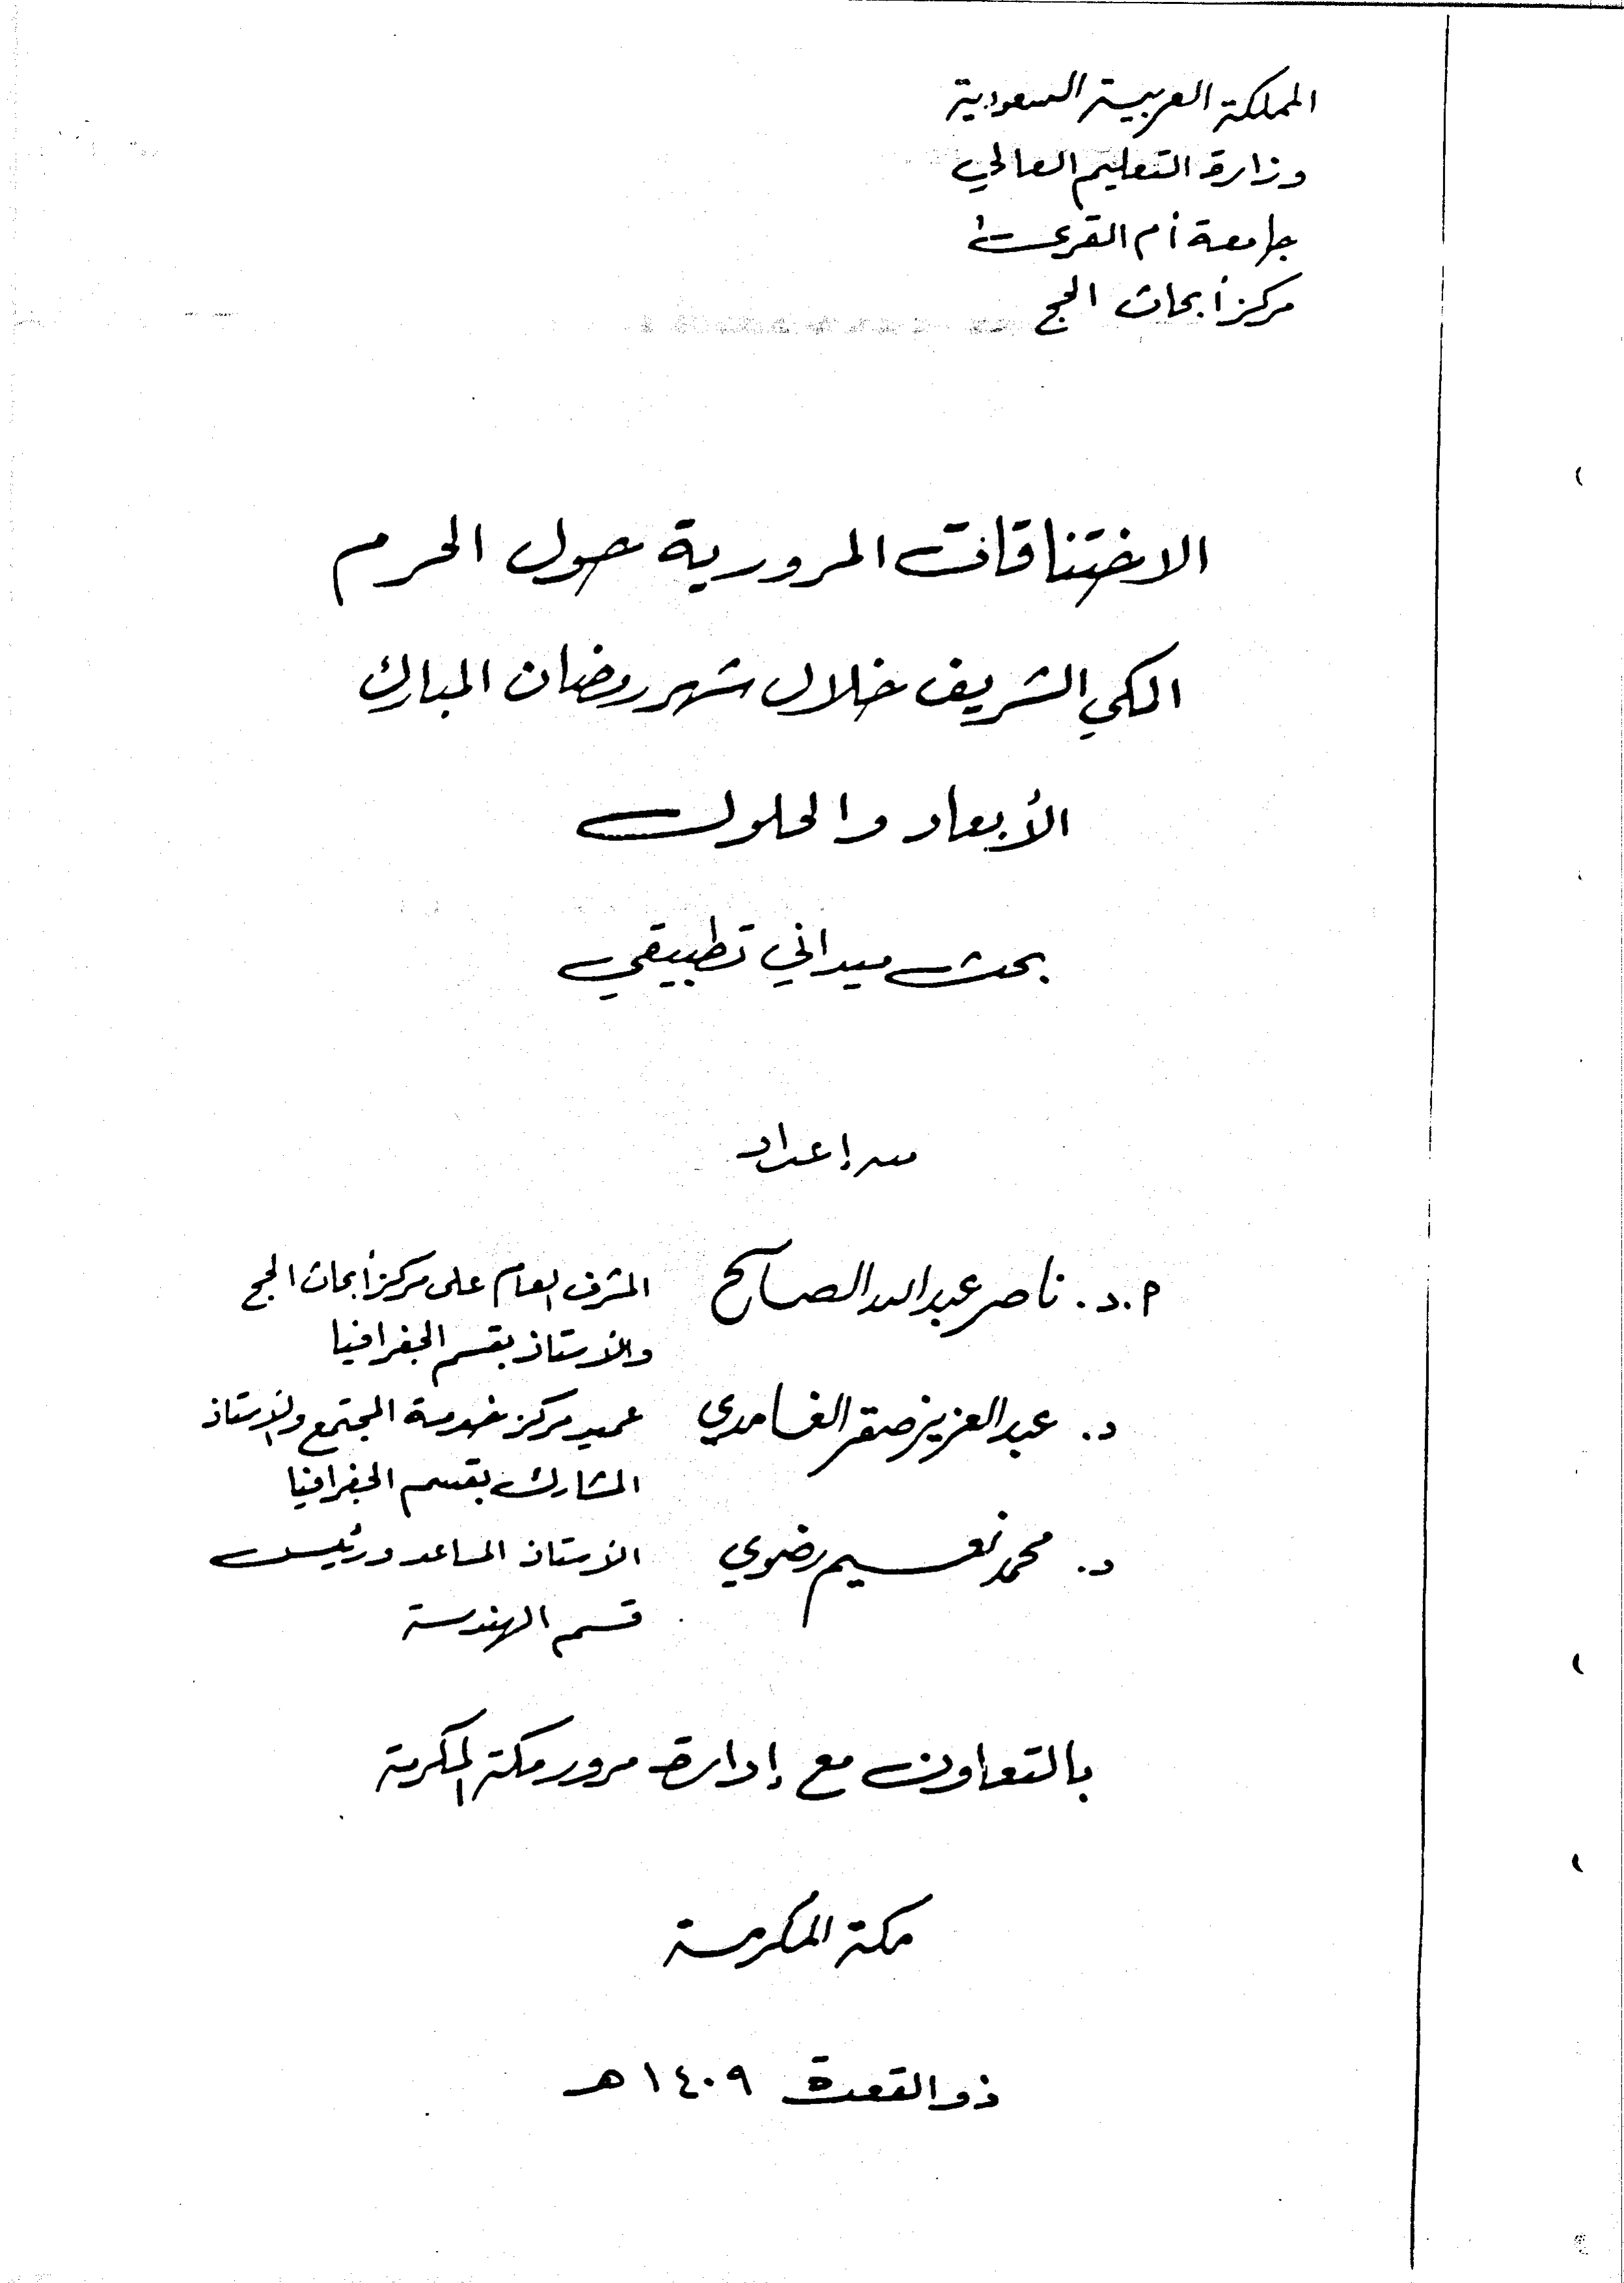 المملكة العربية السعودية
وزارة التعليم العالي
جامعة أم القرى
مركز أبحاث الحج
الاختناقات المرورية حول الحرم
المكي الشريف خلال شهر رمضان المبارك
الأبعاد والحلول
بحث ميداني تطبيقي
من إعداد
أ.د. ناصر عبدالله الصالح المشرف العام على مركز أبحاث الحج
والأستاذ بقسم الجغرافيا
د. عبدالعزيز صقر الغامدي عميد مركز خدمة المجتمع والأستاذ
المشارك بقسم الجغرافيا
د. محمد نعيم رضوي الأستاذ المساعد ورئيس
قسم الهندسة
بالتعاون مع إدارة مرور مكة المكرمة
مكة المكرمة
ذو القعدة ١٤٠٩ هـ